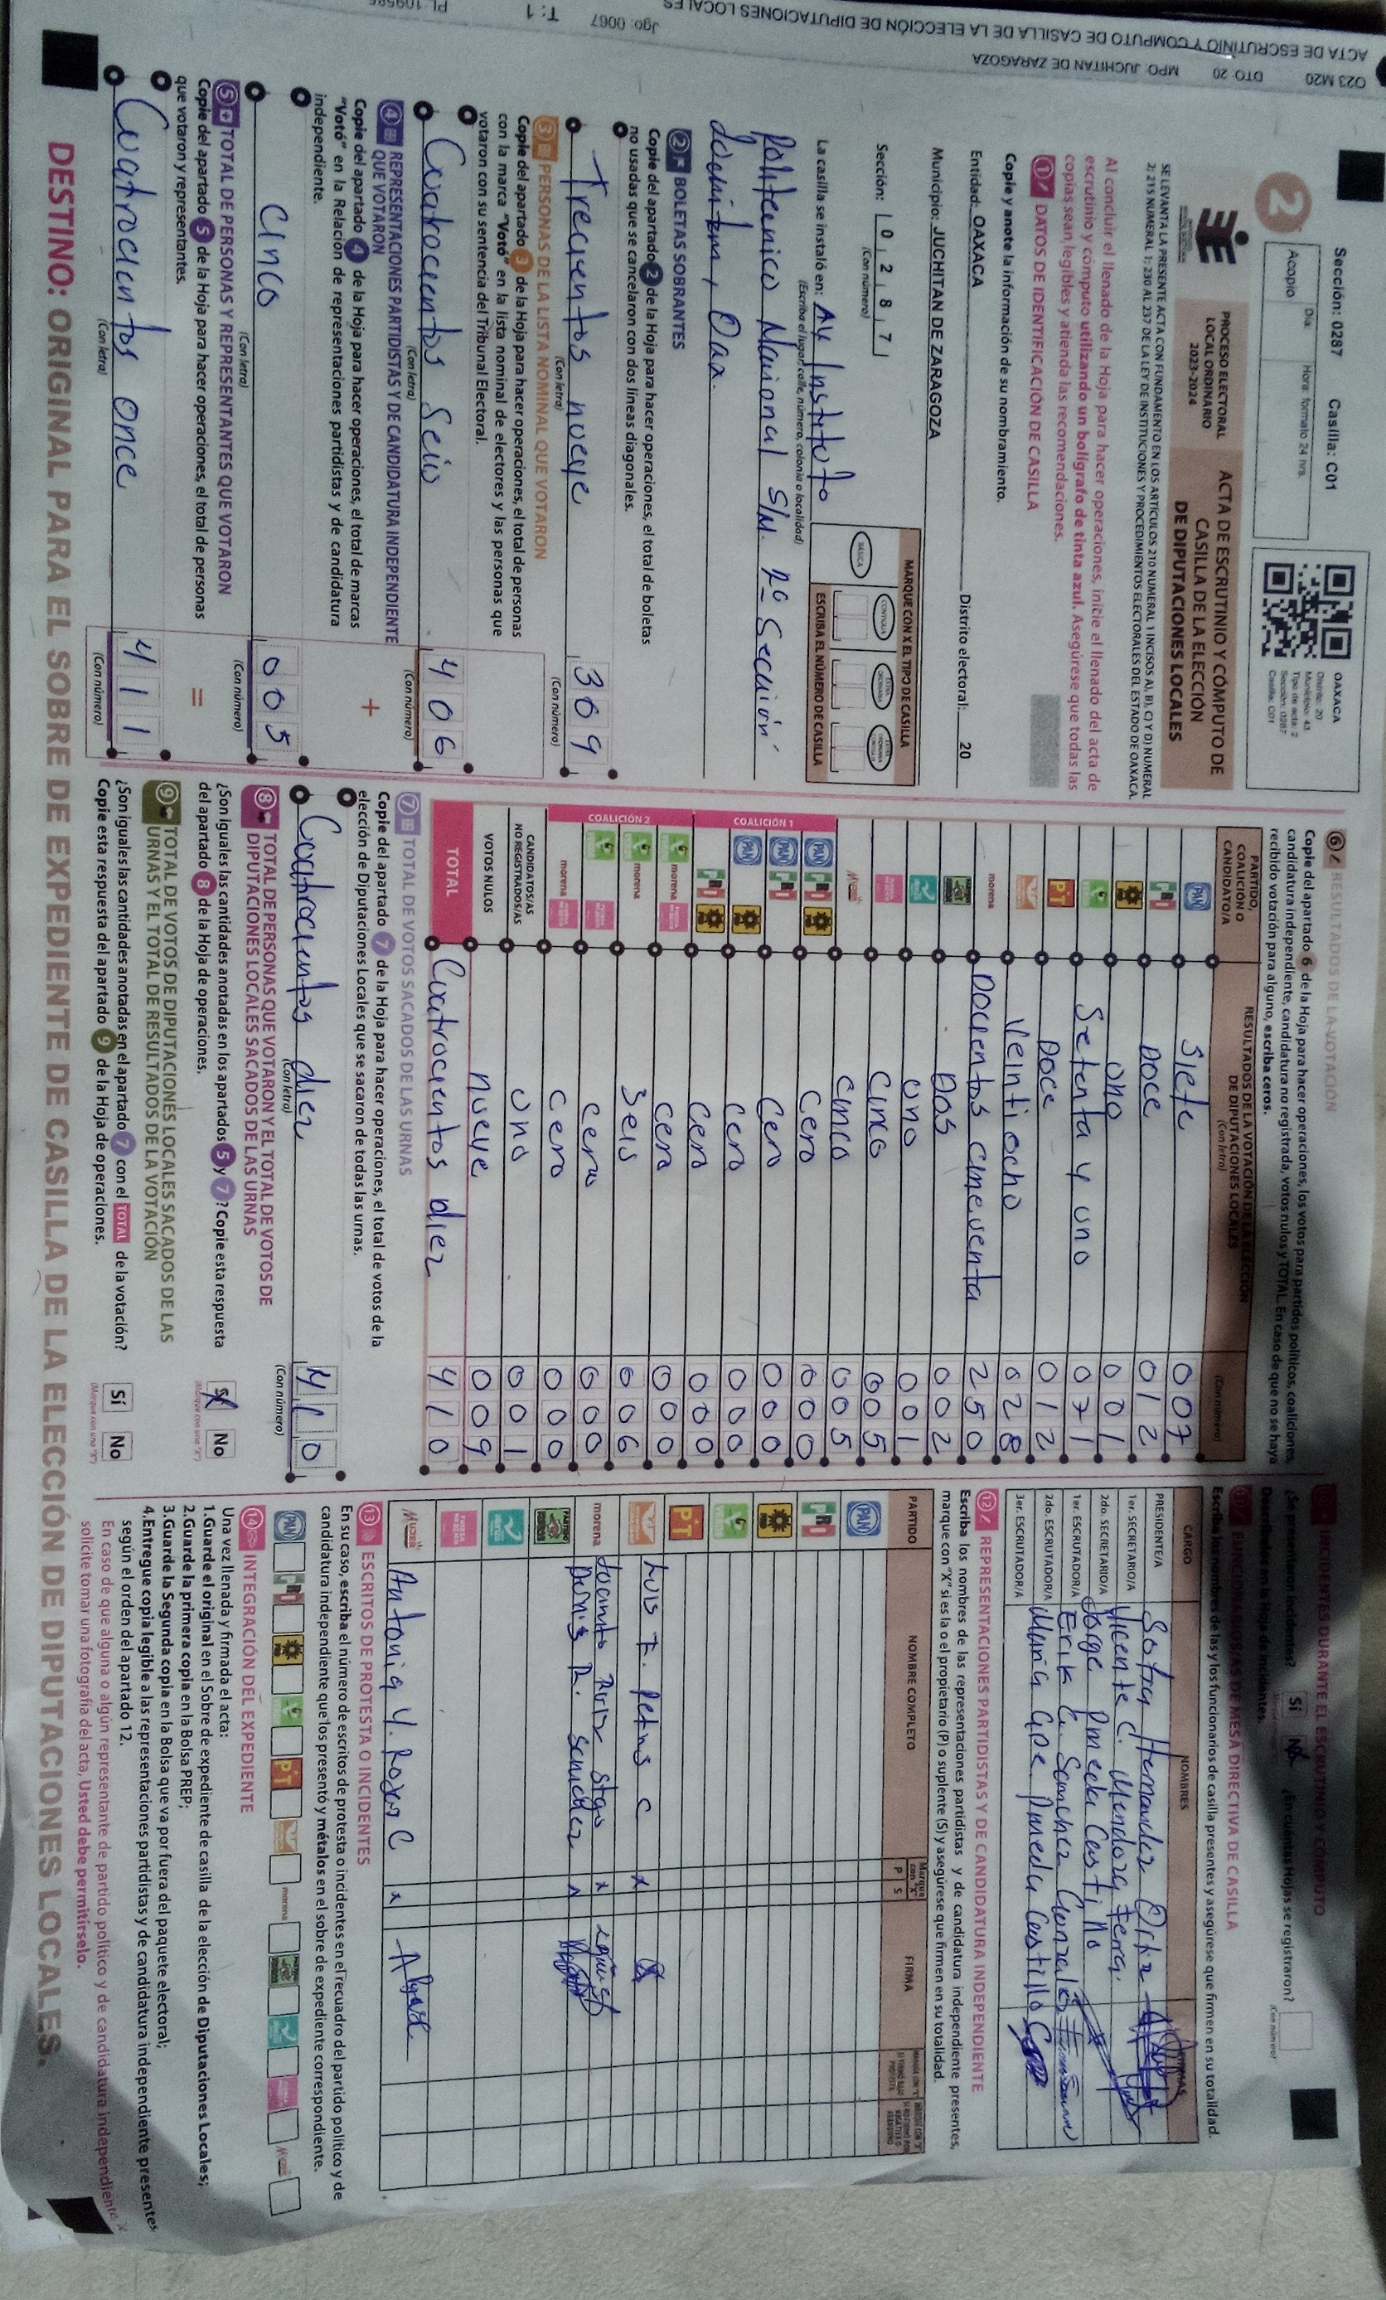 ACTA DE ESCRUTINIO Y CÓMPUTO DE CASILLA DE LA ELECCIÓN DE DIPUTACIONES LOCALES
O23 M20 DTO. 20 MPO. JUCHITAN DE ZARAGOZA
Jgo. 0067 T: 1
Sección: 0287 Casilla: C01
2
Acopio
Día:
Hora: formato 24 hrs.
OAXACA
Distrito: 20
Municipio: 43
Tipo de acta: 2
Sección: 0287
Casilla: C01
PROCESO ELECTORAL
LOCAL ORDINARIO
2023-2024
ACTA DE ESCRUTINIO Y CÓMPUTO DE
CASILLA DE LA ELECCIÓN
DE DIPUTACIONES LOCALES
SE LEVANTA LA PRESENTE ACTA CON FUNDAMENTO EN LOS ARTÍCULOS 210 NUMERAL 1 INCISOS A), B), C) Y D) NUMERAL
2; 215 NUMERAL 1; 230 AL 237 DE LA LEY DE INSTITUCIONES Y PROCEDIMIENTOS ELECTORALES DEL ESTADO DE OAXACA.
Al concluir el llenado de la Hoja para hacer operaciones, inicie el llenado del acta de
escrutinio y cómputo utilizando un bolígrafo de tinta azul. Asegúrese que todas las
copias sean legibles y atienda las recomendaciones.
1 DATOS DE IDENTIFICACIÓN DE CASILLA
Copie y anote la información de su nombramiento.
Entidad: OAXACA Distrito electoral: 20
Municipio: JUCHITAN DE ZARAGOZA
Sección: 0 2 8 7
(Con número)
MARQUE CON X EL TIPO DE CASILLA
BÁSICA
CONTIGUA
ESCRIBA EL NÚMERO DE CASILLA
La casilla se instaló en: Av Instituto
(Escriba el lugar, calle, número, colonia o localidad)
Politecnico Nacional S/N. 2º Sección
2 BOLETAS SOBRANTES
Copie del apartado 2 de la Hoja para hacer operaciones, el total de boletas
no usadas que se cancelaron con dos líneas diagonales.
Trecientos nueve 309
(Con letra) (Con número)
3 PERSONAS DE LA LISTA NOMINAL QUE VOTARON
Copie del apartado 3 de la Hoja para hacer operaciones, el total de personas
con la marca "Votó" en la lista nominal de electores y las personas que
votaron con su sentencia del Tribunal Electoral.
Cuatrocientos Seis 406
(Con letra) (Con número)
4 REPRESENTACIONES PARTIDISTAS Y DE CANDIDATURA INDEPENDIENTE
QUE VOTARON
Copie del apartado 4 de la Hoja para hacer operaciones, el total de marcas
"Votó" en la Relación de representaciones partidistas y de candidatura
independiente.
+
Cinco 005
(Con letra) (Con número)
5 TOTAL DE PERSONAS Y REPRESENTANTES QUE VOTARON
Copie del apartado 5 de la Hoja para hacer operaciones, el total de personas
que votaron y representantes.
=
Cuatrocientos once 411
(Con letra) (Con número)
6 RESULTADOS DE LA VOTACIÓN
Copie del apartado 6 de la Hoja para hacer operaciones, los votos para partidos políticos, coaliciones,
candidatura independiente, candidatura no registrada, votos nulos y TOTAL. En caso de que no se haya
recibido votación para alguno, escriba ceros.
PARTIDO,
COALICIÓN O
CANDIDATO/A
RESULTADOS DE LA VOTACIÓN DE LA ELECCIÓN
DE DIPUTACIONES LOCALES
(Con letra)
(Con número)
PAN Siete 007
PRI Doce 012
PRD uno 001
Setenta y uno 071
PT Doce 012
Veintiocho 028
morena Docientos cincuenta 250
Dos 002
uno 001
Cinco 005
Mujer cinco 005
COALICIÓN 1
PAN PRI PRD Cero 000
PAN PRI Cero 000
PAN PRD cero 000
PRI PRD Cero 000
COALICIÓN 2
morena Cero 000
morena Seis 006
cero 000
morena Cero 000
CANDIDATOS/AS
NO REGISTRADOS/AS uno 001
VOTOS NULOS nueve 009
TOTAL Cuatrocientos diez 410
7 TOTAL DE VOTOS SACADOS DE LAS URNAS
Copie del apartado 7 de la Hoja para hacer operaciones, el total de votos de la
elección de Diputaciones Locales que se sacaron de todas las urnas.
Cuatrocientos diez 410
(Con letra) (Con número)
8 TOTAL DE PERSONAS QUE VOTARON Y EL TOTAL DE VOTOS DE
DIPUTACIONES LOCALES SACADOS DE LAS URNAS
¿Son iguales las cantidades anotadas en los apartados 5 y 7? Copie esta respuesta
del apartado 8 de la Hoja de operaciones.
Sí No
(Marque con una "X")
9 TOTAL DE VOTOS DE DIPUTACIONES LOCALES SACADOS DE LAS
URNAS Y EL TOTAL DE RESULTADOS DE LA VOTACIÓN
¿Son iguales las cantidades anotadas en el apartado 7 con el TOTAL de la votación?
Copie esta respuesta del apartado 9 de la Hoja de operaciones.
Sí No
(Marque con una "X")
INCIDENTES DURANTE EL ESCRUTINIO Y CÓMPUTO
¿Se presentaron incidentes? Sí No ¿En cuántas Hojas se registraron?
(Con número)
FUNCIONARIOS/AS DE MESA DIRECTIVA DE CASILLA
Escriba los nombres de las y los funcionarios de casilla presentes y asegúrese que firmen en su totalidad.
CARGO NOMBRES FIRMAS
PRESIDENTE/A Hernandez
1er. SECRETARIO/A Vicente C. Mendoza
2do. SECRETARIO/A Jorge Pineda Castillo
1er. ESCRUTADOR/A Erik Sanchez Gonzalez
2do. ESCRUTADOR/A Maria Gpe. Pineda Castillo
3er. ESCRUTADOR/A
12 REPRESENTACIONES PARTIDISTAS Y DE CANDIDATURA INDEPENDIENTE
Escriba los nombres de las representaciones partidistas y de candidatura independiente presentes,
marque con "X" si es la o el propietario (P) o suplente (S) y asegúrese que firmen en su totalidad.
PARTIDO NOMBRE COMPLETO P S FIRMA
PAN
PRI
PRD
PT
Luis F. C x
morena x
Denis R. Sanchez x
Mujer Antonia V. Rojas C x
13 ESCRITOS DE PROTESTA O INCIDENTES
En su caso, escriba el número de escritos de protesta o incidentes en el recuadro del partido político y de
candidatura independiente que los presentó y métalos en el sobre de expediente correspondiente.
PAN PRI PRD PT morena Mujer
14 INTEGRACIÓN DEL EXPEDIENTE
Una vez llenada y firmada el acta:
1. Guarde el original en el Sobre de expediente de casilla de la elección de Diputaciones Locales;
2. Guarde la primera copia en la Bolsa PREP;
3. Guarde la Segunda copia en la Bolsa que va por fuera del paquete electoral;
4. Entregue copia legible a las representaciones partidistas y de candidatura independiente presentes
según el orden del apartado 12.
En caso de que alguna o algún representante de partido político y de candidatura independiente
solicite tomar una fotografía del acta, Usted debe permitírselo.
DESTINO: ORIGINAL PARA EL SOBRE DE EXPEDIENTE DE CASILLA DE LA ELECCIÓN DE DIPUTACIONES LOCALES.